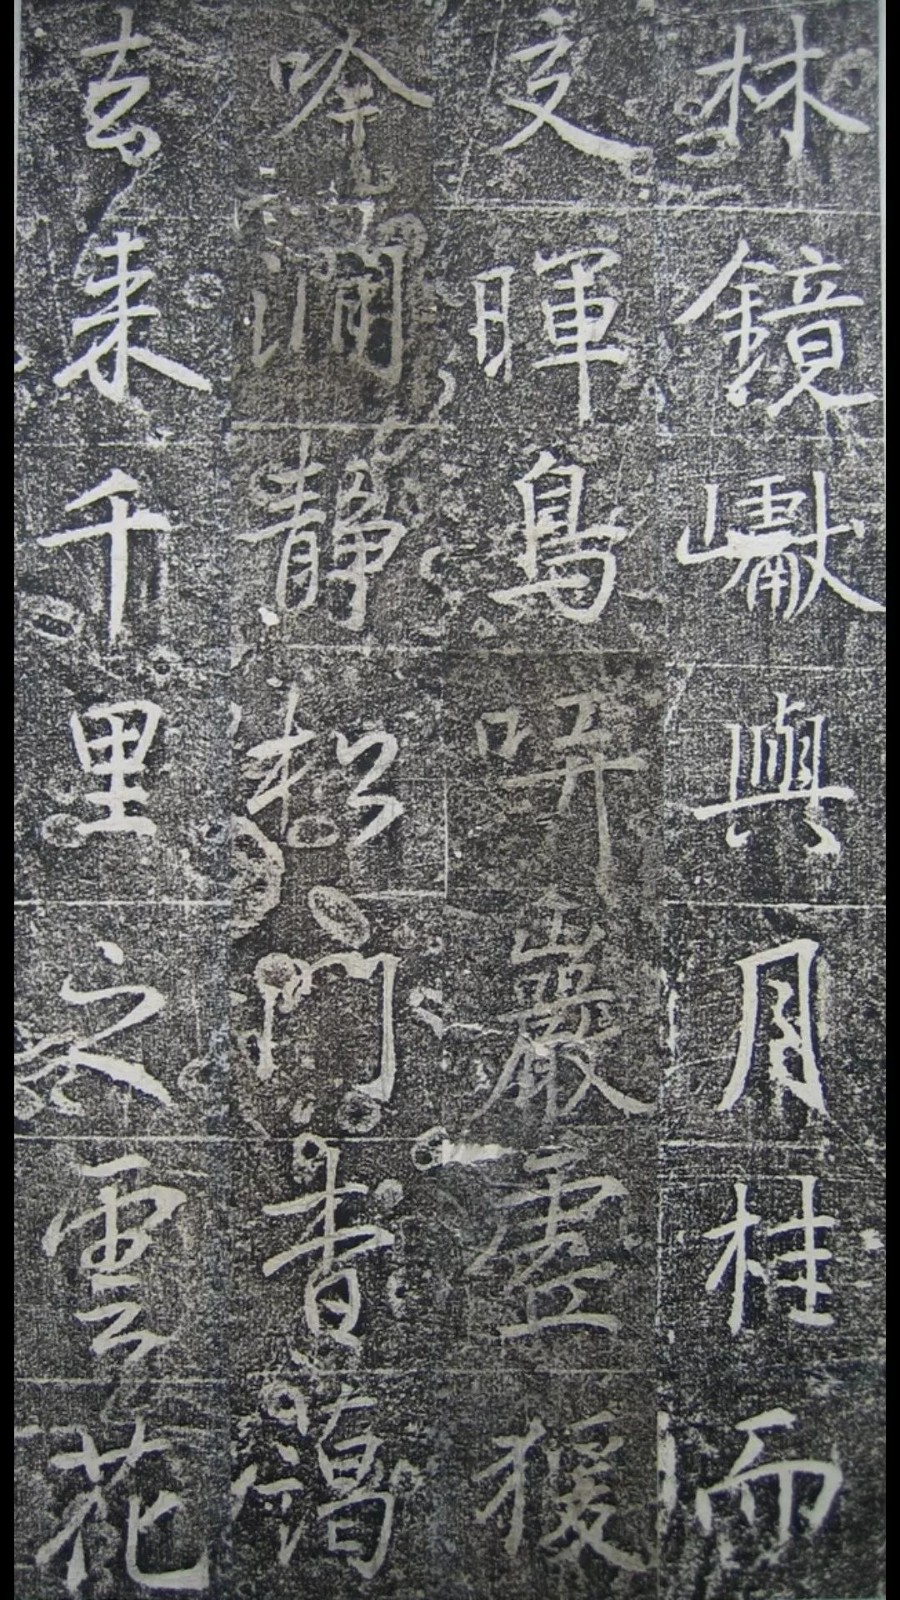 林鏡巘與月桂而
交暉鳥哢巖虛猨
吟澗静松門杳藹
去來千里之雲花